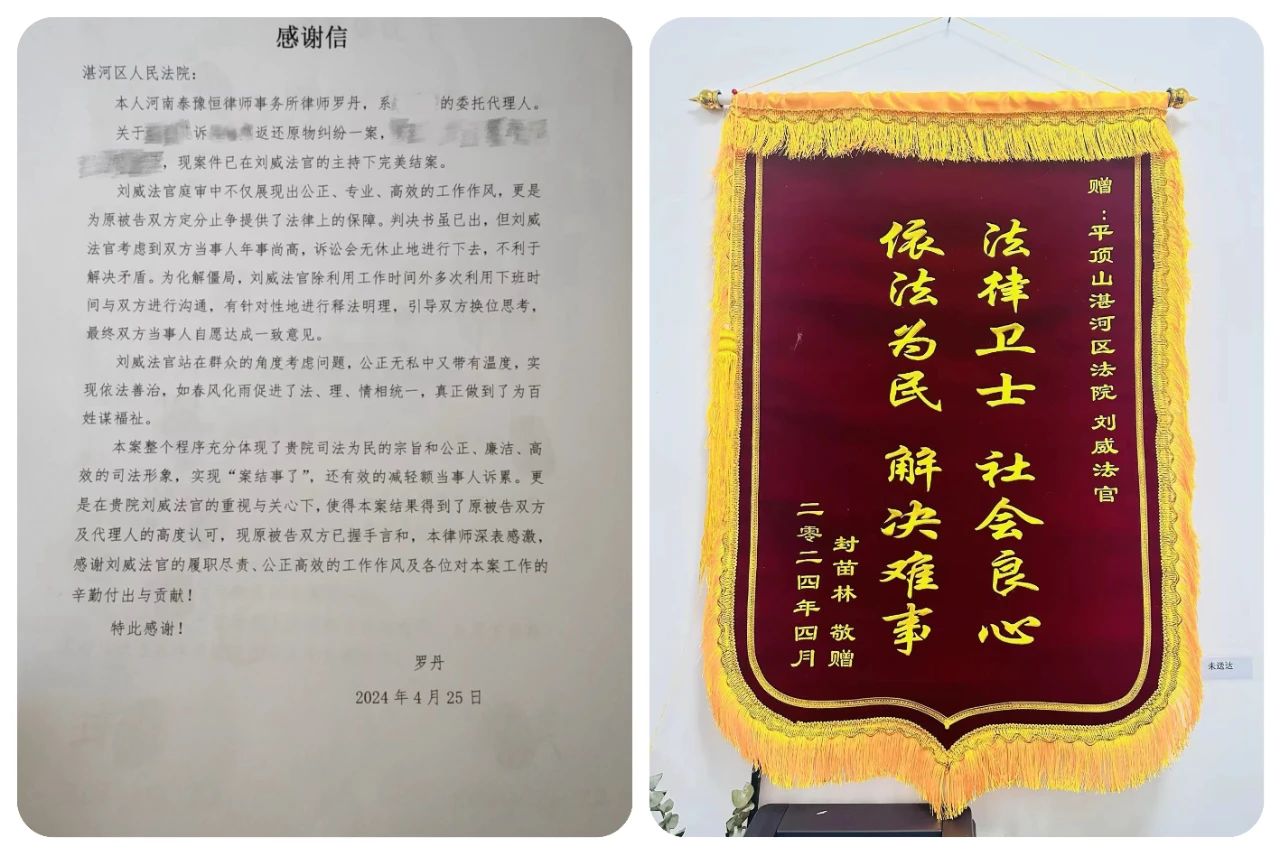 感谢信
湛河区人民法院：
本人河南泰豫恒律师事务所律师罗丹，系 的委托代理人。
关于 诉 返还原物纠纷一案，
，现案件已在刘威法官的主持下完美结案。
刘威法官庭审中不仅展现出公正、专业、高效的工作作风，更是
为原被告双方定分止争提供了法律上的保障。判决书虽已出，但刘威
法官考虑到双方当事人年事尚高，诉讼会无休止地进行下去，不利于
解决矛盾。为化解僵局，刘威法官除利用工作时间外多次利用下班时
间与双方进行沟通，有针对性地进行释法明理，引导双方换位思考，
最终双方当事人自愿达成一致意见。
刘威法官站在群众的角度考虑问题，公正无私中又带有温度，实
现依法善治，如春风化雨促进了法、理、情相统一，真正做到了为百
姓谋福祉。
本案整个程序充分体现了贵院司法为民的宗旨和公正、廉洁、高
效的司法形象，实现“案结事了”，还有效的减轻额当事人诉累。更
是在贵院刘威法官的重视与关心下，使得本案结果得到了原被告双方
及代理人的高度认可，现原被告双方已握手言和，本律师深表感激，
感谢刘威法官的履职尽责、公正高效的工作作风及各位对本案工作的
辛勤付出与贡献！
特此感谢！
罗丹
2024年4月25日
赠：平顶山湛河区法院 刘威法官
法律卫士 社会良心
依法为民 解决难事
封苗林 敬赠
二零二四年四月
未送达